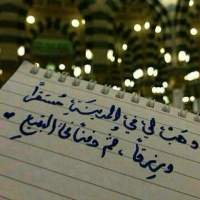 وهب لي في المدينة مستقرا
ورزقا ، ثم دفنا في البقيع